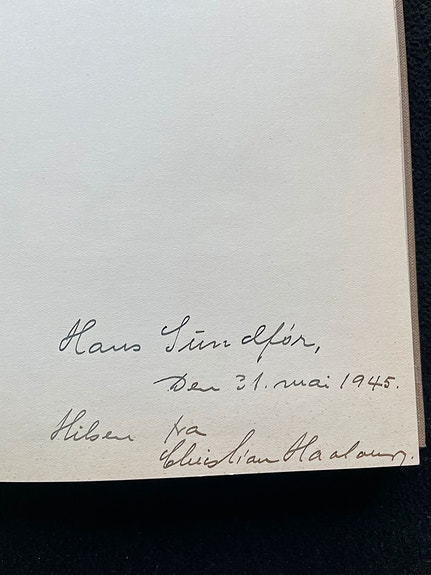 Hans Sündfør,
Den 31. mai 1945.
Hilsen fra
Christian Haaland.